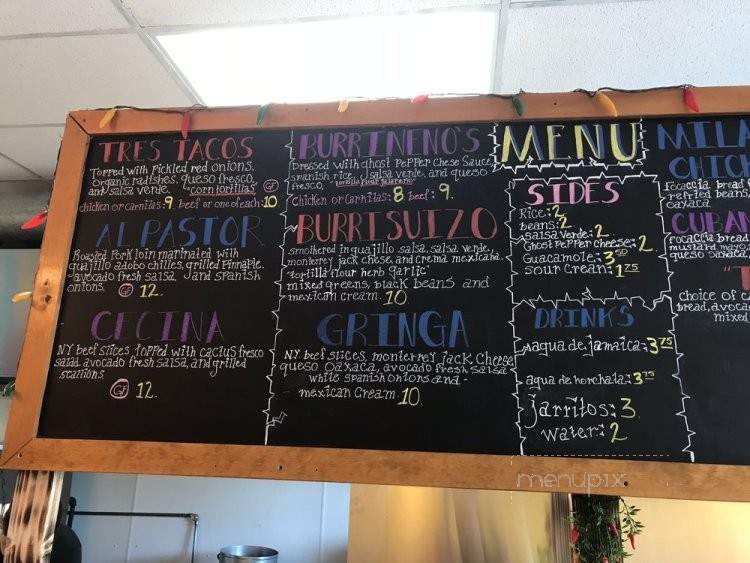 TRES TACOS
Topped with Pickled red onions,
organic radishes, queso fresco,
and salsa verde. "corn tortillas" GF
chicken or carnitas: 9 beef or one of each: 10
AL PASTOR
Roasted Pork loin marinated with
guajillo adobo chilles, grilled Pinnaple,
avocado fresh salsa, and spanish
onions. GF 12.
CECINA
NY beef slices, topped with cactus fresco
salad, avocado fresh salsa, and grilled
stallions.
GF 12.
BURRINENO'S
Dressed with ghost PePPer Chese Sauce,
spanish rice, salsa verde, and queso
fresco,
chicken or Carnitas: 8 beef: 9.
BURRISUIZO
smothered in guajillo salsa, salsa verde,
monterrey jack chese, and crema mexicana.
"tortilla flour herb garlic"
mixed greens, black beans and
mexican cream. 10
GRINGA
NY beef slices, monterrey jack Cheese,
queso Oaxaca, avocado fresh salsa
white spanish onions and -
mexican Cream. 10
MENU
SIDES
Rice: 2
beans: 2
Salsa verde: 2
Ghost PePPer cheese: 2
Guacamole: 3 50
sour Crean: 1 75
DRINKS
agua de jamaica: 3 75
agua de horchata: 3 75
jarritos: 3
water: 2
MILA
CHIC
focaccia bread
refried beans,
oaxaca
CUBAN
focaccia bread
mustard mayo
queso oaxaca
"T
choice of c
bread, avoca
mixed
menupix